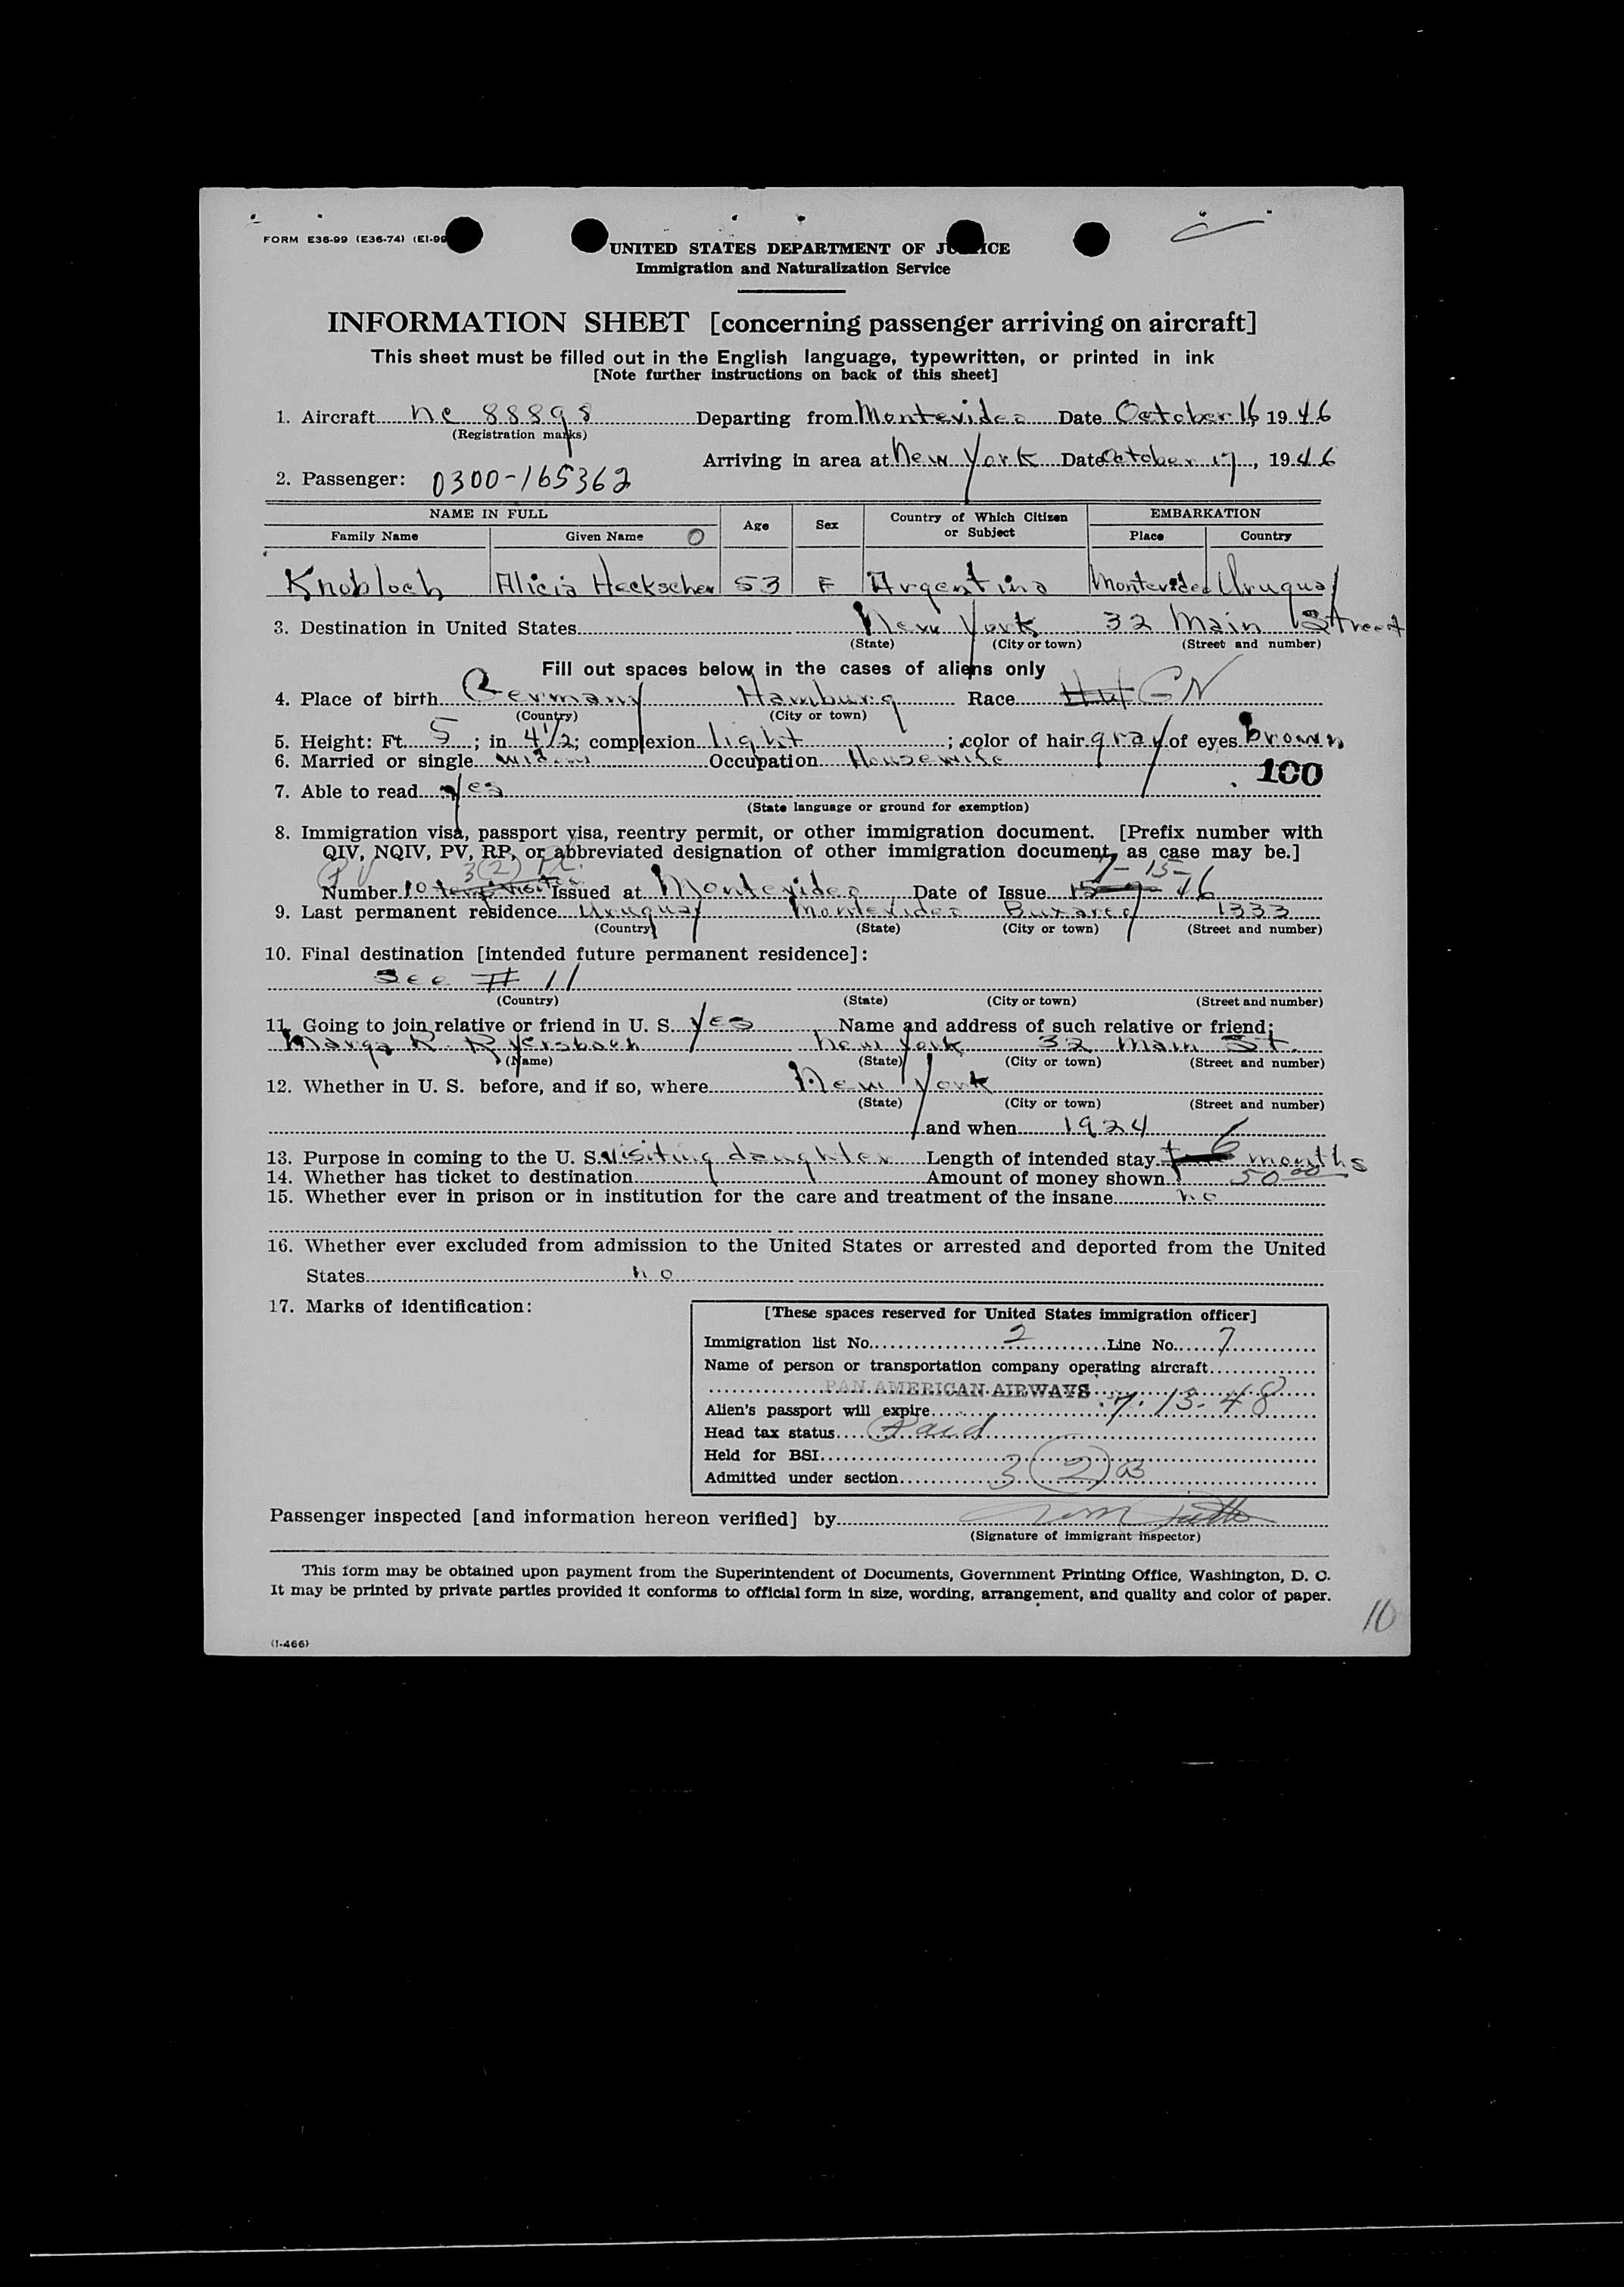 FORM E36-99 (E36-74) (E1-99
UNITED STATES DEPARTMENT OF JUSTICE
Immigration and Naturalization Service
INFORMATION SHEET [concerning passenger arriving on aircraft]
This sheet must be filled out in the English language, typewritten, or printed in ink
[Note further instructions on back of this sheet]
1. Aircraft nc 88898 Departing from Montevideo Date October 16 1946
(Registration marks)
Arriving in area at New York Date October 17, 1946
2. Passenger: 0300-165362
NAME IN FULL Age Sex Country of Which Citizen or Subject EMBARKATION
Family Name Given Name Place Country
Knobloch Alicia Heckscher 53 F Argentina Montevideo Uruguay
3. Destination in United States New York 32 Main Street
(State) (City or town) (Street and number)
Fill out spaces below in the cases of aliens only
4. Place of birth Germany Hamburg Race GN
(Country) (City or town)
5. Height: Ft. 5; in 4 1/2; complexion light; color of hair gray of eyes brown
6. Married or single widow Occupation Housewife
100
7. Able to read yes
(State language or ground for exemption)
8. Immigration visa, passport visa, reentry permit, or other immigration document. [Prefix number with
QIV, NQIV, PV, RP, or abbreviated designation of other immigration document, as case may be.]
PV 3(2) 7-15-
Number 10 Issued at Montevideo Date of Issue 46
9. Last permanent residence Uruguay Montevideo Buxareo 1333
(Country) (State) (City or town) (Street and number)
10. Final destination [intended future permanent residence]:
See # 11
(Country) (State) (City or town) (Street and number)
11. Going to join relative or friend in U. S. yes Name and address of such relative or friend:
Marga R. Ryersbach New York 32 Main St.
(Name) (State) (City or town) (Street and number)
12. Whether in U. S. before, and if so, where New York
(State) (City or town) (Street and number)
and when 1924
13. Purpose in coming to the U. S. Visiting daughter Length of intended stay 6 months
14. Whether has ticket to destination Amount of money shown 50 00
15. Whether ever in prison or in institution for the care and treatment of the insane no
16. Whether ever excluded from admission to the United States or arrested and deported from the United
States no
17. Marks of identification:
[These spaces reserved for United States immigration officer]
Immigration list No. 2 Line No. 7
Name of person or transportation company operating aircraft
PAN AMERICAN AIRWAYS
Alien's passport will expire 7-15-48
Head tax status Paid
Held for BSI
Admitted under section 3(2)
Passenger inspected [and information hereon verified] by
(Signature of immigrant inspector)
This form may be obtained upon payment from the Superintendent of Documents, Government Printing Office, Washington, D. C.
It may be printed by private parties provided it conforms to official form in size, wording, arrangement, and quality and color of paper.
10
(I-466)